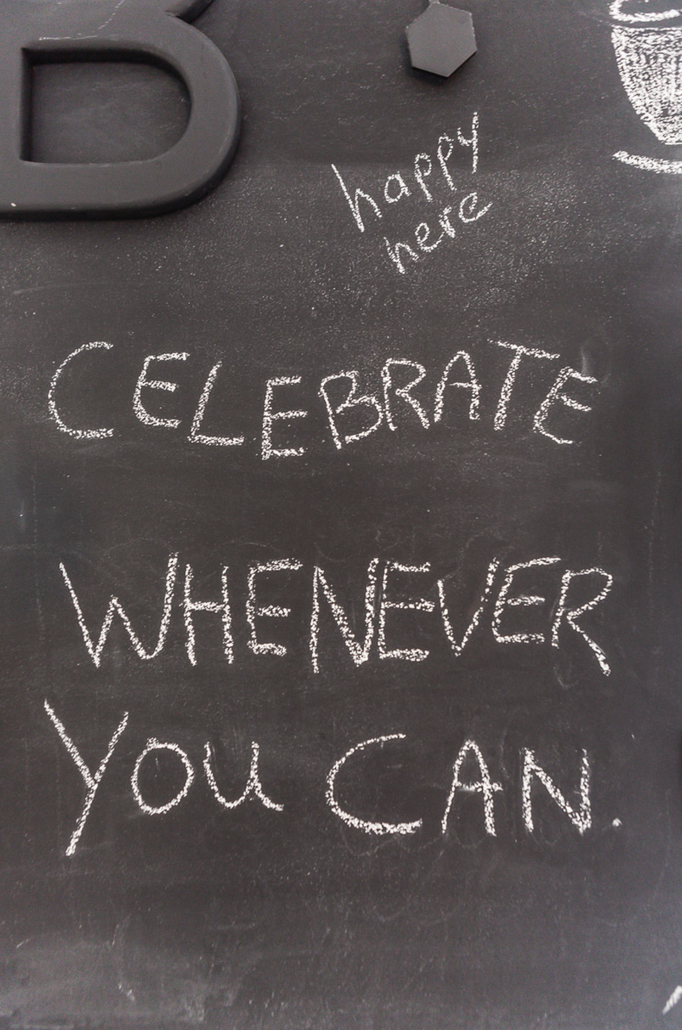 B
happy
here
CELEBRATE
WHENEVER
YOU CAN.